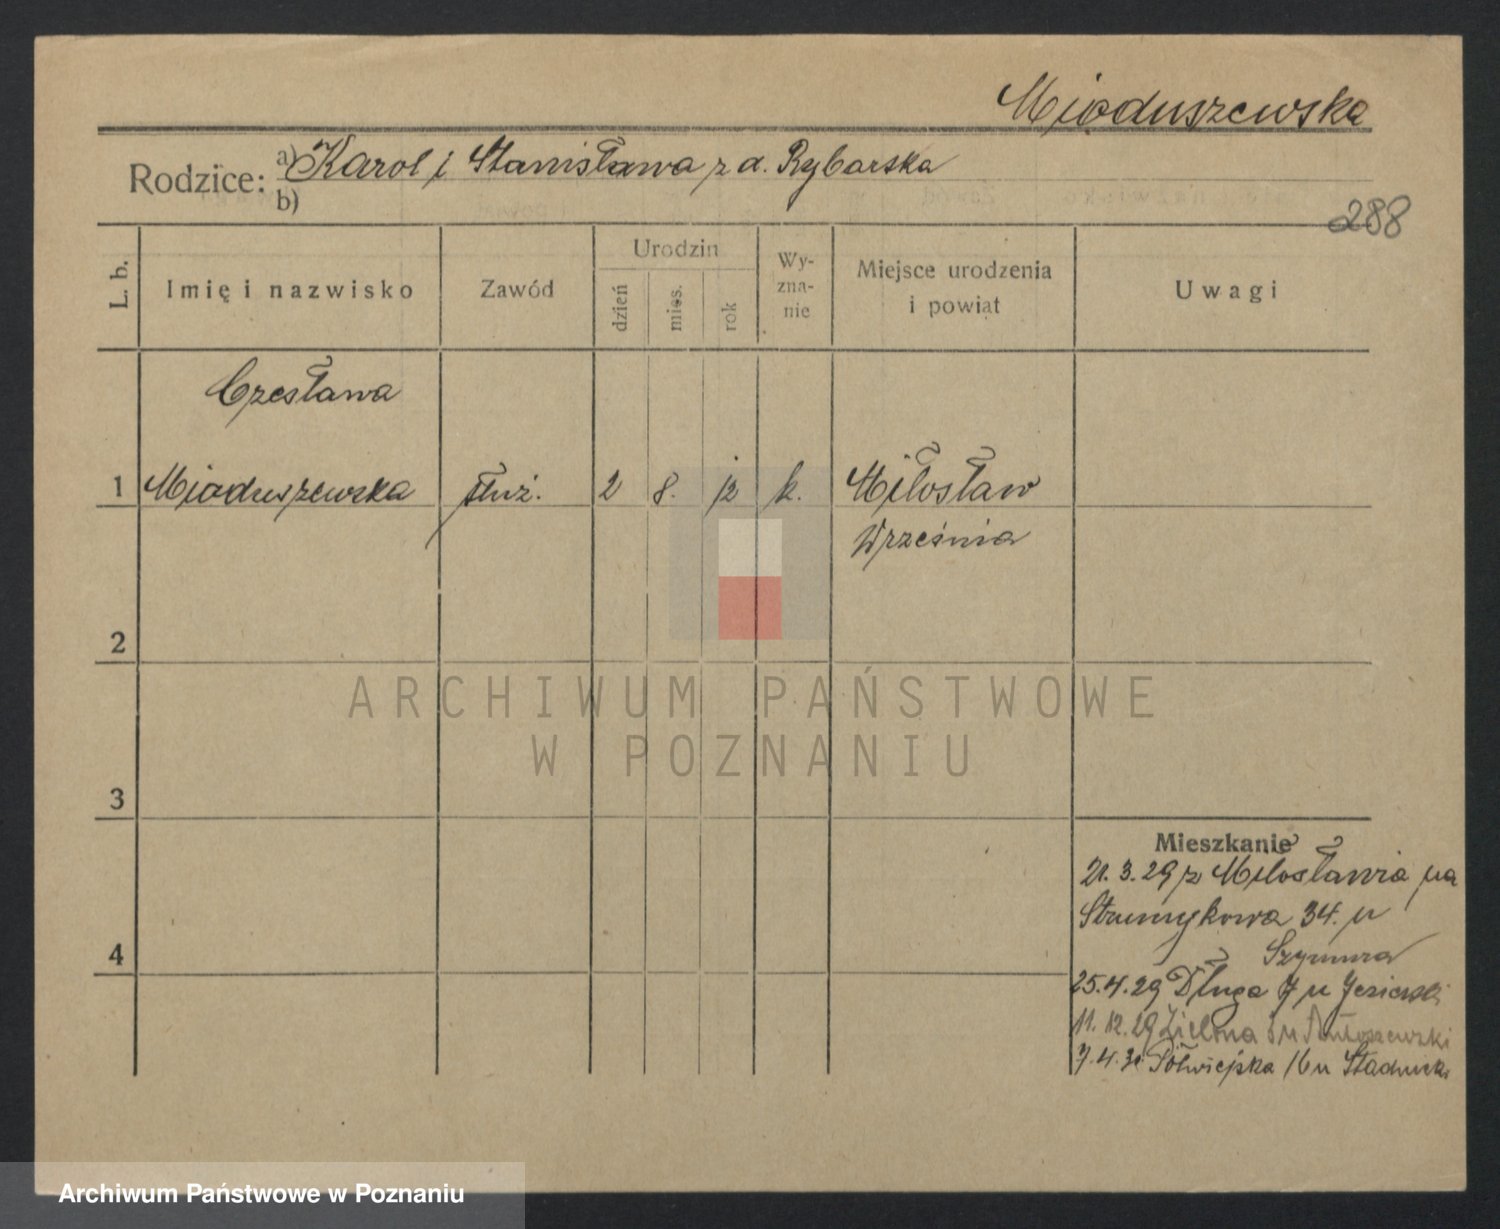 Mioduszewska
Rodzice: a) Karol i Stanisława z d. Rybarska
b)
288
L. b.
Imię i nazwisko
Zawód
Urodzin
dzień
mies.
rok
Wy-
zna-
nie
Miejsce urodzenia
i powiat
Uwagi
Czesława
1 Mioduszewska służ. 2 8. 12 k. Miłosław
Września
2
ARCHIWUM PAŃSTWOWE
W POZNANIU
3
Mieszkanie
21.3.29 z Miłosławia na
Strumykowa 34. u
Szymura
4
25.4.29 Długa 7 u Jezierski
11.12.29 Zielona u
7.4.30 Półwiejska 16 u Stadnicki
Archiwum Państwowe w Poznaniu